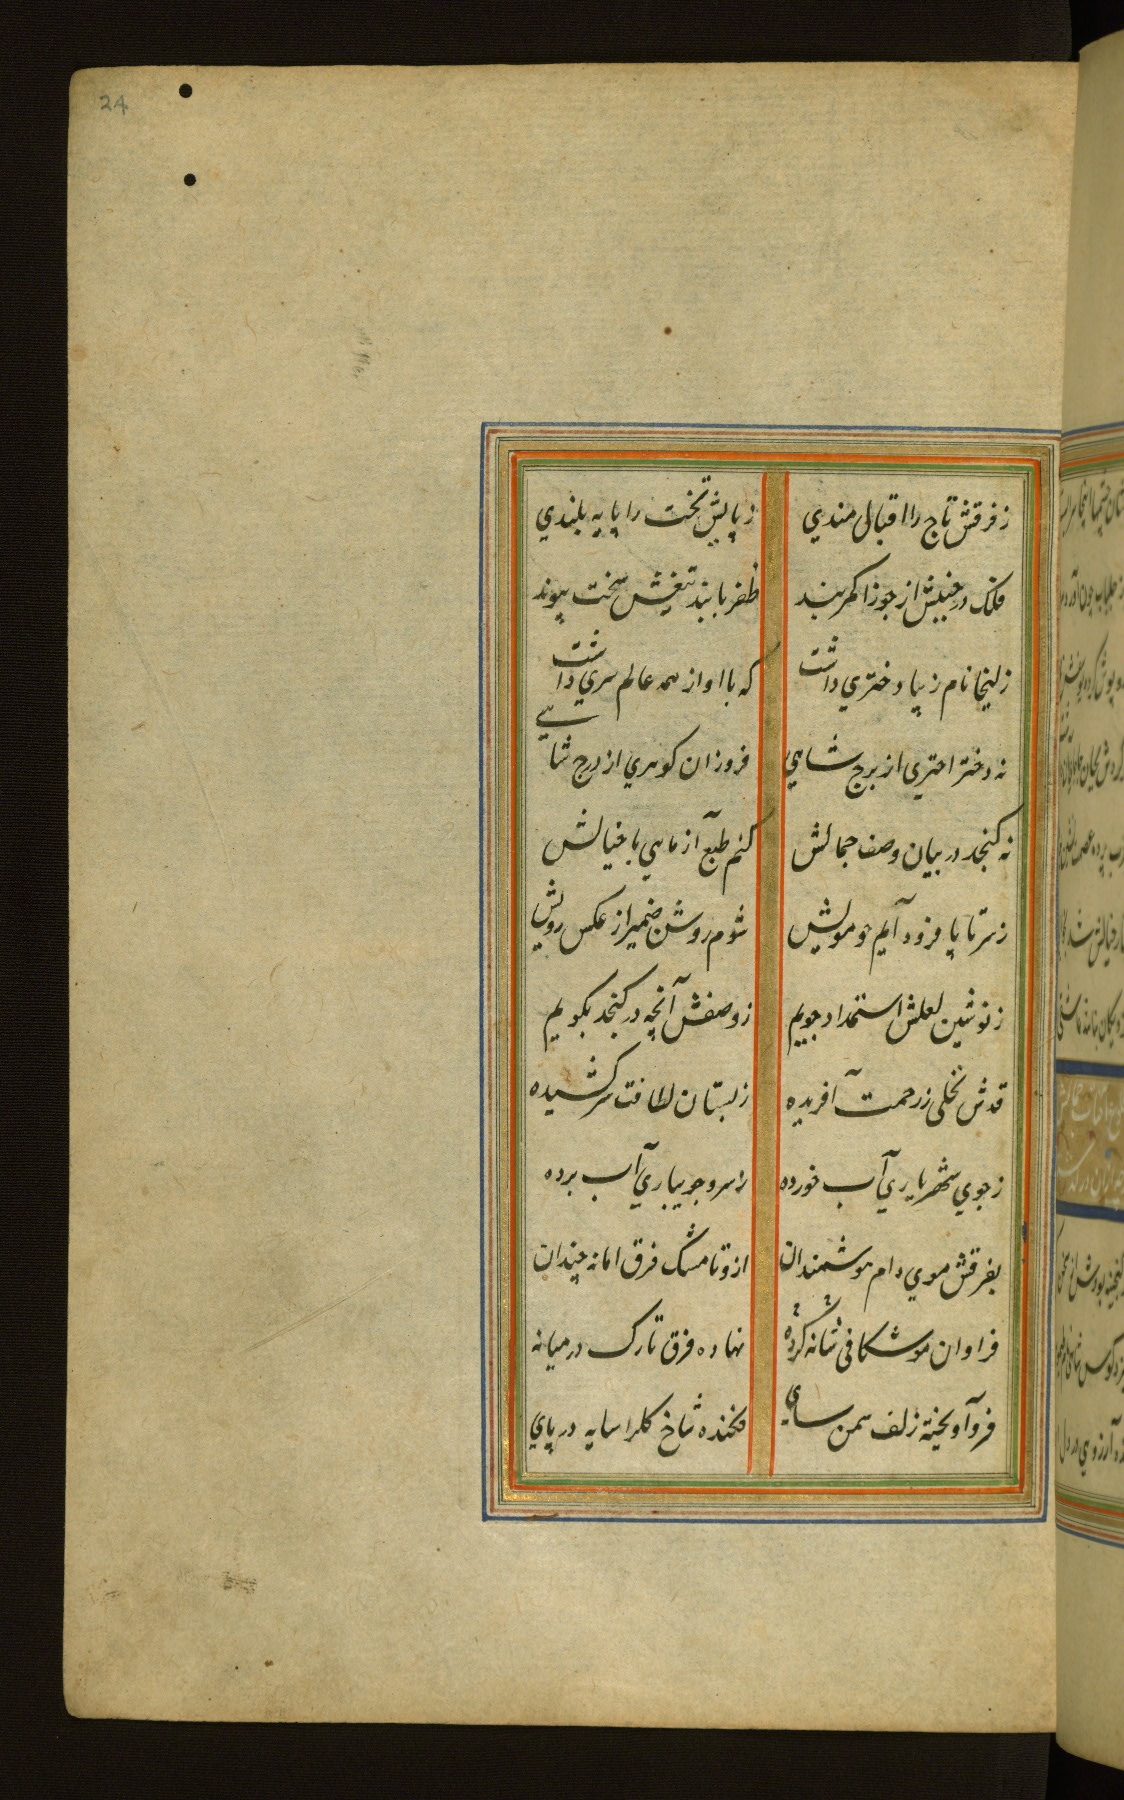 24
زفرقش تاج را اقبال مندي
زپايش تخت را پايه بلندي
فلك در خيلش از جوزا كمربند
ظفر با بند تيغش سخت پيوند
زليخا نام زيبا دختري داشت
كه با او از همه عالم سري داشت
نه دختر اختري از برج شاهي
فروزان كوهري از درج شاهي
نه كنجد در بيان وصف جمالش
كنم طبع آزمايي با خيالش
زسر تا پا فرود آيم چو مويش
شوم روشن ضمير از عكس رويش
زنوشين لعلش استمداد جويم
زوصفش آنچه در كنجد بكويم
قدش نخلي زرحمت آفريده
زبستان لطافت سر كشيده
زجوي شهرياري آب خورده
زسرو جويباري آب برده
بفرقش موي دام هوشمندان
ازو تا مشك فرق اما نه چندان
فراوان موشكافي كرده شانه
نهاده فرق تارك در ميانه
فرو آويخته زلف سمن ساي
فكنده شاخ كلرا سايه در پاي